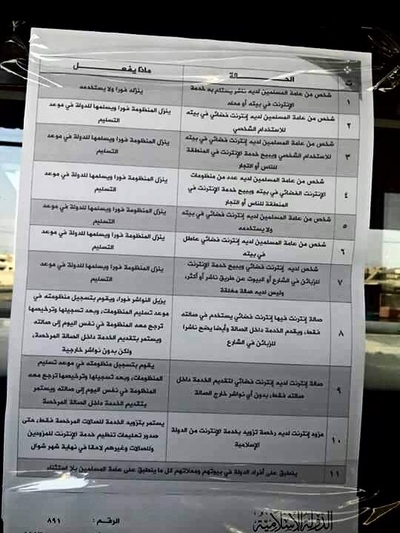 ت الحـــــالـــــة ماذا يفعـــــل
١ شخص من عامة المسلمين لديه ناشر يستلم به خدمة الإنترنت في بيته أو محله
ينزله فورا ولا يستخدمه
٢ شخص من عامة المسلمين لديه إنترنت فضائي في بيته للاستخدام الشخصي
ينزل المنظومة فورا ويسلمها للدولة في موعد التسليم
٣ شخص من عامة المسلمين لديه إنترنت فضائي في بيته للاستخدام الشخصي ويبيع خدمة الإنترنت في المنطقة للناس أو التجار
ينزل المنظومة فورا ويسلمها للدولة في موعد التسليم
٤ شخص من عامة المسلمين لديه عدد من منظومات الإنترنت الفضائي في بيته ويبيع خدمة الإنترنت في المنطقة للناس أو التجار
ينزل المنظومة فورا ويسلمها للدولة في موعد التسليم
٥ شخص من عامة المسلمين لديه إنترنت فضائي في بيته ولا يستخدمه
ينزل المنظومة فورا ويسلمها للدولة في موعد التسليم
٦ شخص من عامة المسلمين لديه إنترنت فضائي عاطل في بيته
ينزل المنظومة فورا ويسلمها للدولة في موعد التسليم
٧ شخص لديه إنترنت فضائي ويبيع خدمة الإنترنت للزبائن في الشارع أو البيوت عن طريق ناشر أو أكثر، وليس لديه صالة مغلقة
ينزل المنظومة فورا ويسلمها للدولة في موعد التسليم
٨ صالة إنترنت فيها إنترنت فضائي يستخدم في صالته فقط، ويقدم الخدمة داخل الصالة وأيضا يضع ناشرا للزبائن في الشارع
يزيل النواشر فورا، ويقوم بتسجيل منظومته في موعد تسليم المنظومات، وبعد تسجيلها وترخيصها ترجع معه المنظومة في نفس اليوم إلى صالته ويستمر بتقديم الخدمة داخل الصالة المرخصة، ولكن بدون نواشر خارجية
٩ صالة إنترنت لديه إنترنت فضائي لتقديم الخدمة داخل صالته فقط، بدون أي نواشر خارج الصالة
يقوم بتسجيل منظومته في موعد تسليم المنظومات، وبعد تسجيلها وترخيصها ترجع معه المنظومة في نفس اليوم إلى صالته ويستمر بتقديم الخدمة داخل الصالة المرخصة
١٠ مزود إنترنت لديه رخصة تزويد بخدمة الإنترنت من الدولة الإسلامية
يستمر بتزويد الخدمة للصالات المرخصة فقط، حتى صدور تعليمات تنظيم خدمة الإنترنت للمزودين والصالات وغيرهم لاحقا في نهاية شهر شوال
١١ ينطبق على أفراد الدولة في بيوتهم ومحلاتهم كل ما ينطبق على عامة المسلمين بلا استثناء
الدولة الإسلامية
الرقم: ٨٩١